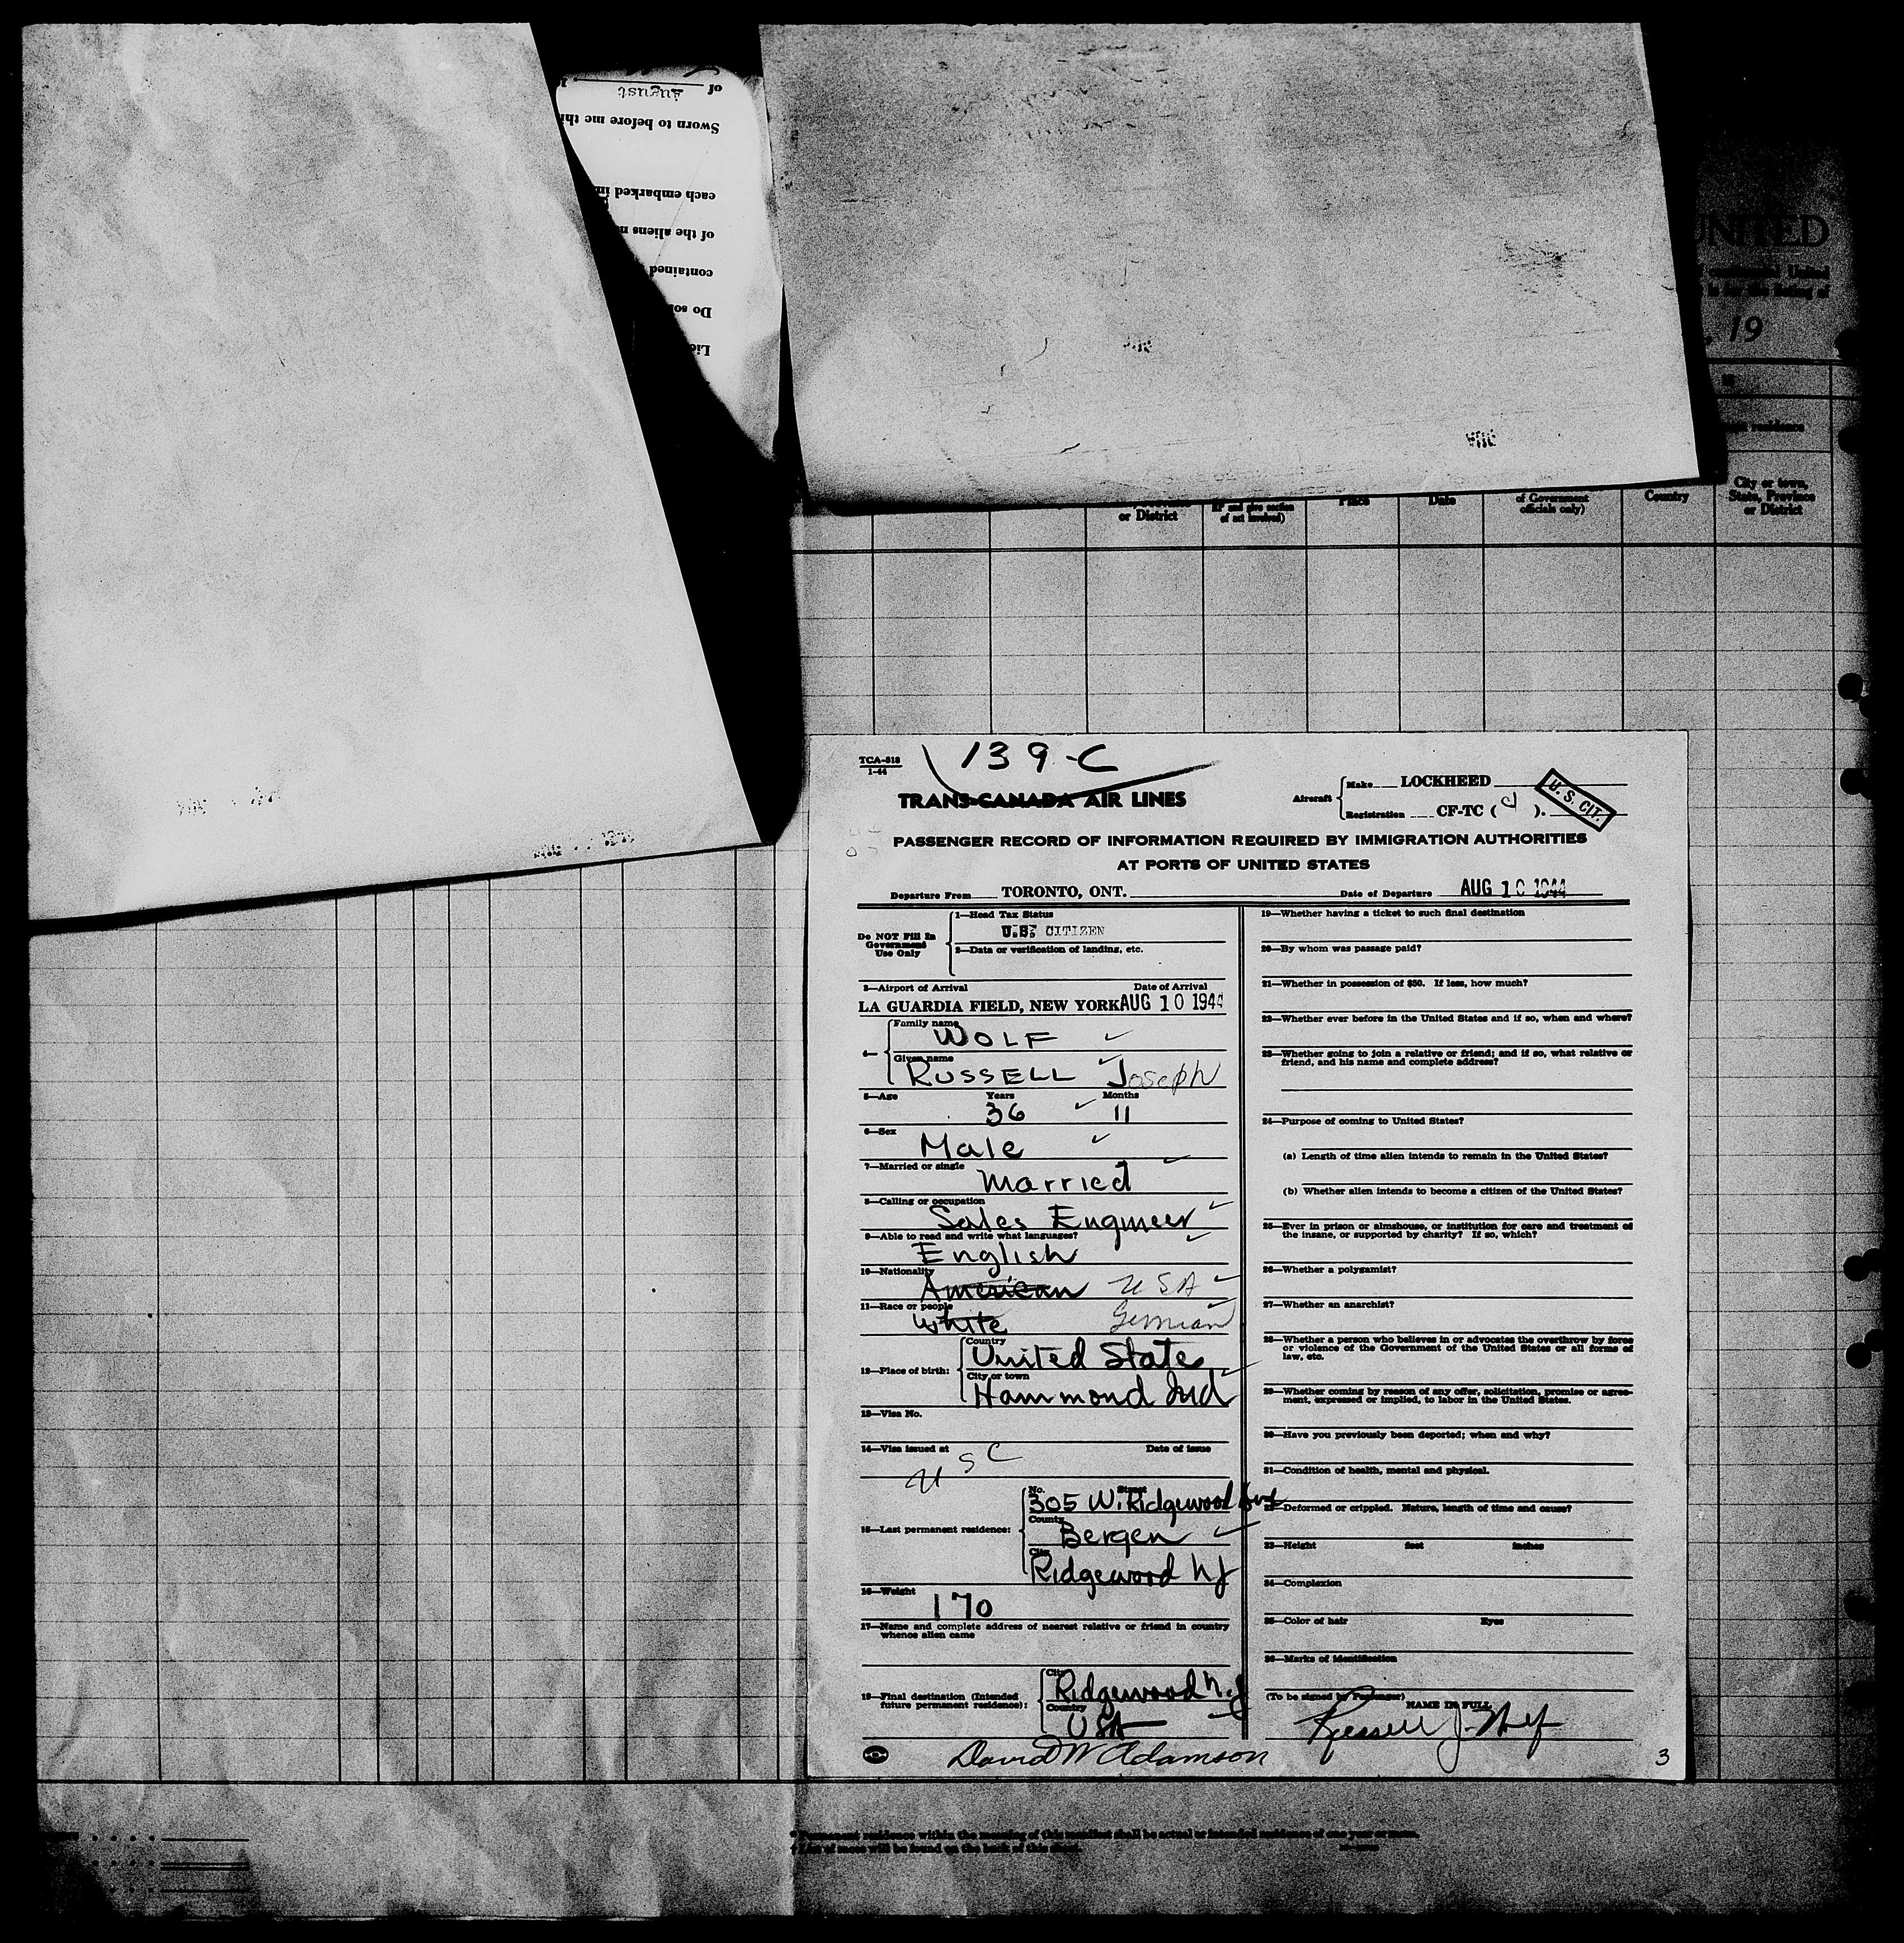 of August
Sworn to before me thi
each embarked in
of the aliens
contained
Do
UNITED
19
or District
of act involved)
Place
Date
of Government
officials only)
Country
City or town,
State, Province
or District
TCA-518
1-44
139-C
TRANS-CANADA AIR LINES
Aircraft
Make LOCKHEED
Registration CF-TC ( ).
U. S. CIT.
PASSENGER RECORD OF INFORMATION REQUIRED BY IMMIGRATION AUTHORITIES
AT PORTS OF UNITED STATES
Departure From TORONTO, ONT.
Date of Departure AUG 10 1944
Do NOT Fill In
Government
Use Only
1—Head Tax Status
U.S. CITIZEN
2—Data or verification of landing, etc.
3—Airport of Arrival Date of Arrival
LA GUARDIA FIELD, NEW YORK AUG 10 1944
4—
Family name
WOLF
Given name
RUSSELL Joseph
5—Age Years Months
36 11
6—Sex
Male
7—Married or single
Married
8—Calling or occupation
Sales Engineer
9—Able to read and write what languages?
English
10—Nationality
American USA
11—Race or people
White German
12—Place of birth:
Country
United States
City or town
Hammond Ind
13—Visa No.
14—Visa issued at Date of issue
U S C
15—Last permanent residence:
No. Street
305 W. Ridgewood Ave
County
Bergen
City
Ridgewood NJ
16—Weight
170
17—Name and complete address of nearest relative or friend in country
whence alien came
18—Final destination (Intended
future permanent residence):
City
Ridgewood N.J
Country
USA
David W Adamson
19—Whether having a ticket to such final destination
20—By whom was passage paid?
21—Whether in possession of $50. If less, how much?
22—Whether ever before in the United States and if so, when and where?
23—Whether going to join a relative or friend; and if so, what relative or
friend, and his name and complete address?
24—Purpose of coming to United States?
(a) Length of time alien intends to remain in the United States?
(b) Whether alien intends to become a citizen of the United States?
25—Ever in prison or almshouse, or institution for care and treatment of
the insane, or supported by charity? If so, which?
26—Whether a polygamist?
27—Whether an anarchist?
28—Whether a person who believes in or advocates the overthrow by force
or violence of the Government of the United States or all forms of
law, etc.
29—Whether coming by reason of any offer, solicitation, promise or agree-
ment, expressed or implied, to labor in the United States.
30—Have you previously been deported; when and why?
31—Condition of health, mental and physical.
32—Deformed or crippled. Nature, length of time and cause?
33—Height feet inches
34—Complexion
35—Color of hair Eyes
36—Marks of identification
(To be signed by Passenger) NAME IN FULL
Russell J. Wolf
3
* Permanent residence within the meaning of this manifest shall be actual or intended residence of one year or more.
† List of races will be found on the back of this sheet.